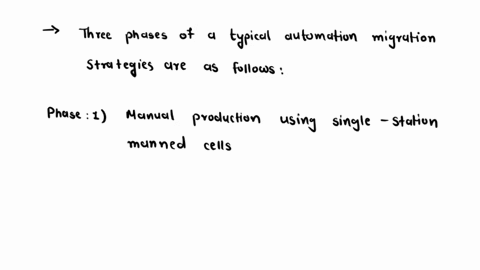 → Three phases of a typical automation migration
strategies are as follows:
Phase: 1) Manual production using single - station
manned cells